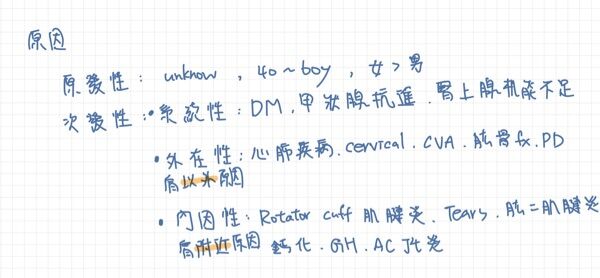 原因
原發性：unknow，40~60y，女>男
次發性：•系統性：DM、甲狀腺抗進、腎上腺机能不足
•外在性：心肺疾病、cervical、CVA、肱骨fx、PD
肩以外原因
•內因性：Rotator cuff 肌腱炎、Tears、肱二肌腱炎
肩附近原因 鈣化、GH、AC 关炎